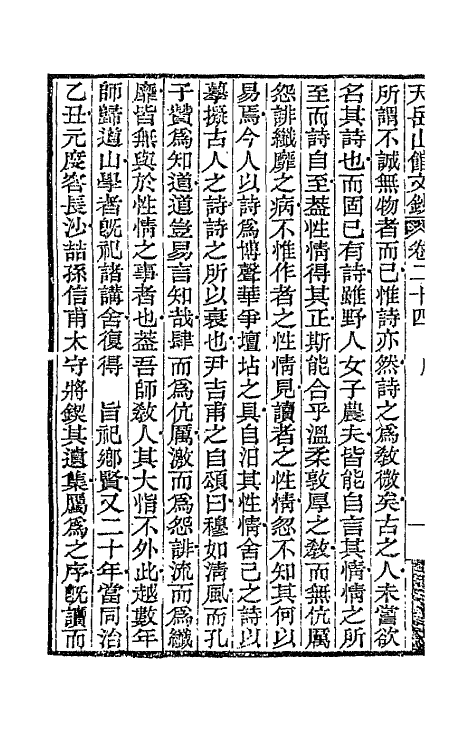 天岳山館文鈔 卷二十四 序 一
所謂不誠無物者而已惟詩亦然詩之爲敎微矣古之人未嘗欲
名其詩也而固已有詩雖野人女子農夫皆能自言其情情之所
至而詩自至葢性情得其正斯能合乎溫柔敦厚之敎而無伉厲
怨誹纖靡之病不惟作者之性情見讀者之性情忽不知其何以
易焉今人以詩爲博聲華爭壇坫之具自汨其性情舍己之詩以
摹擬古人之詩詩之所以衰也尹吉甫之自頌曰穆如淸風而孔
子贊爲知道道豈易言知哉肆而爲伉厲激而爲怨誹流而爲纖
靡皆無與於性情之事者也葢吾師敎人其大恉不外此越數年
師歸道山學者旣祀諸講舍復得 旨祀鄉賢又二十年當同治
乙丑元度客長沙喆孫信甫太守將鍥其遺集屬爲之序旣讀而